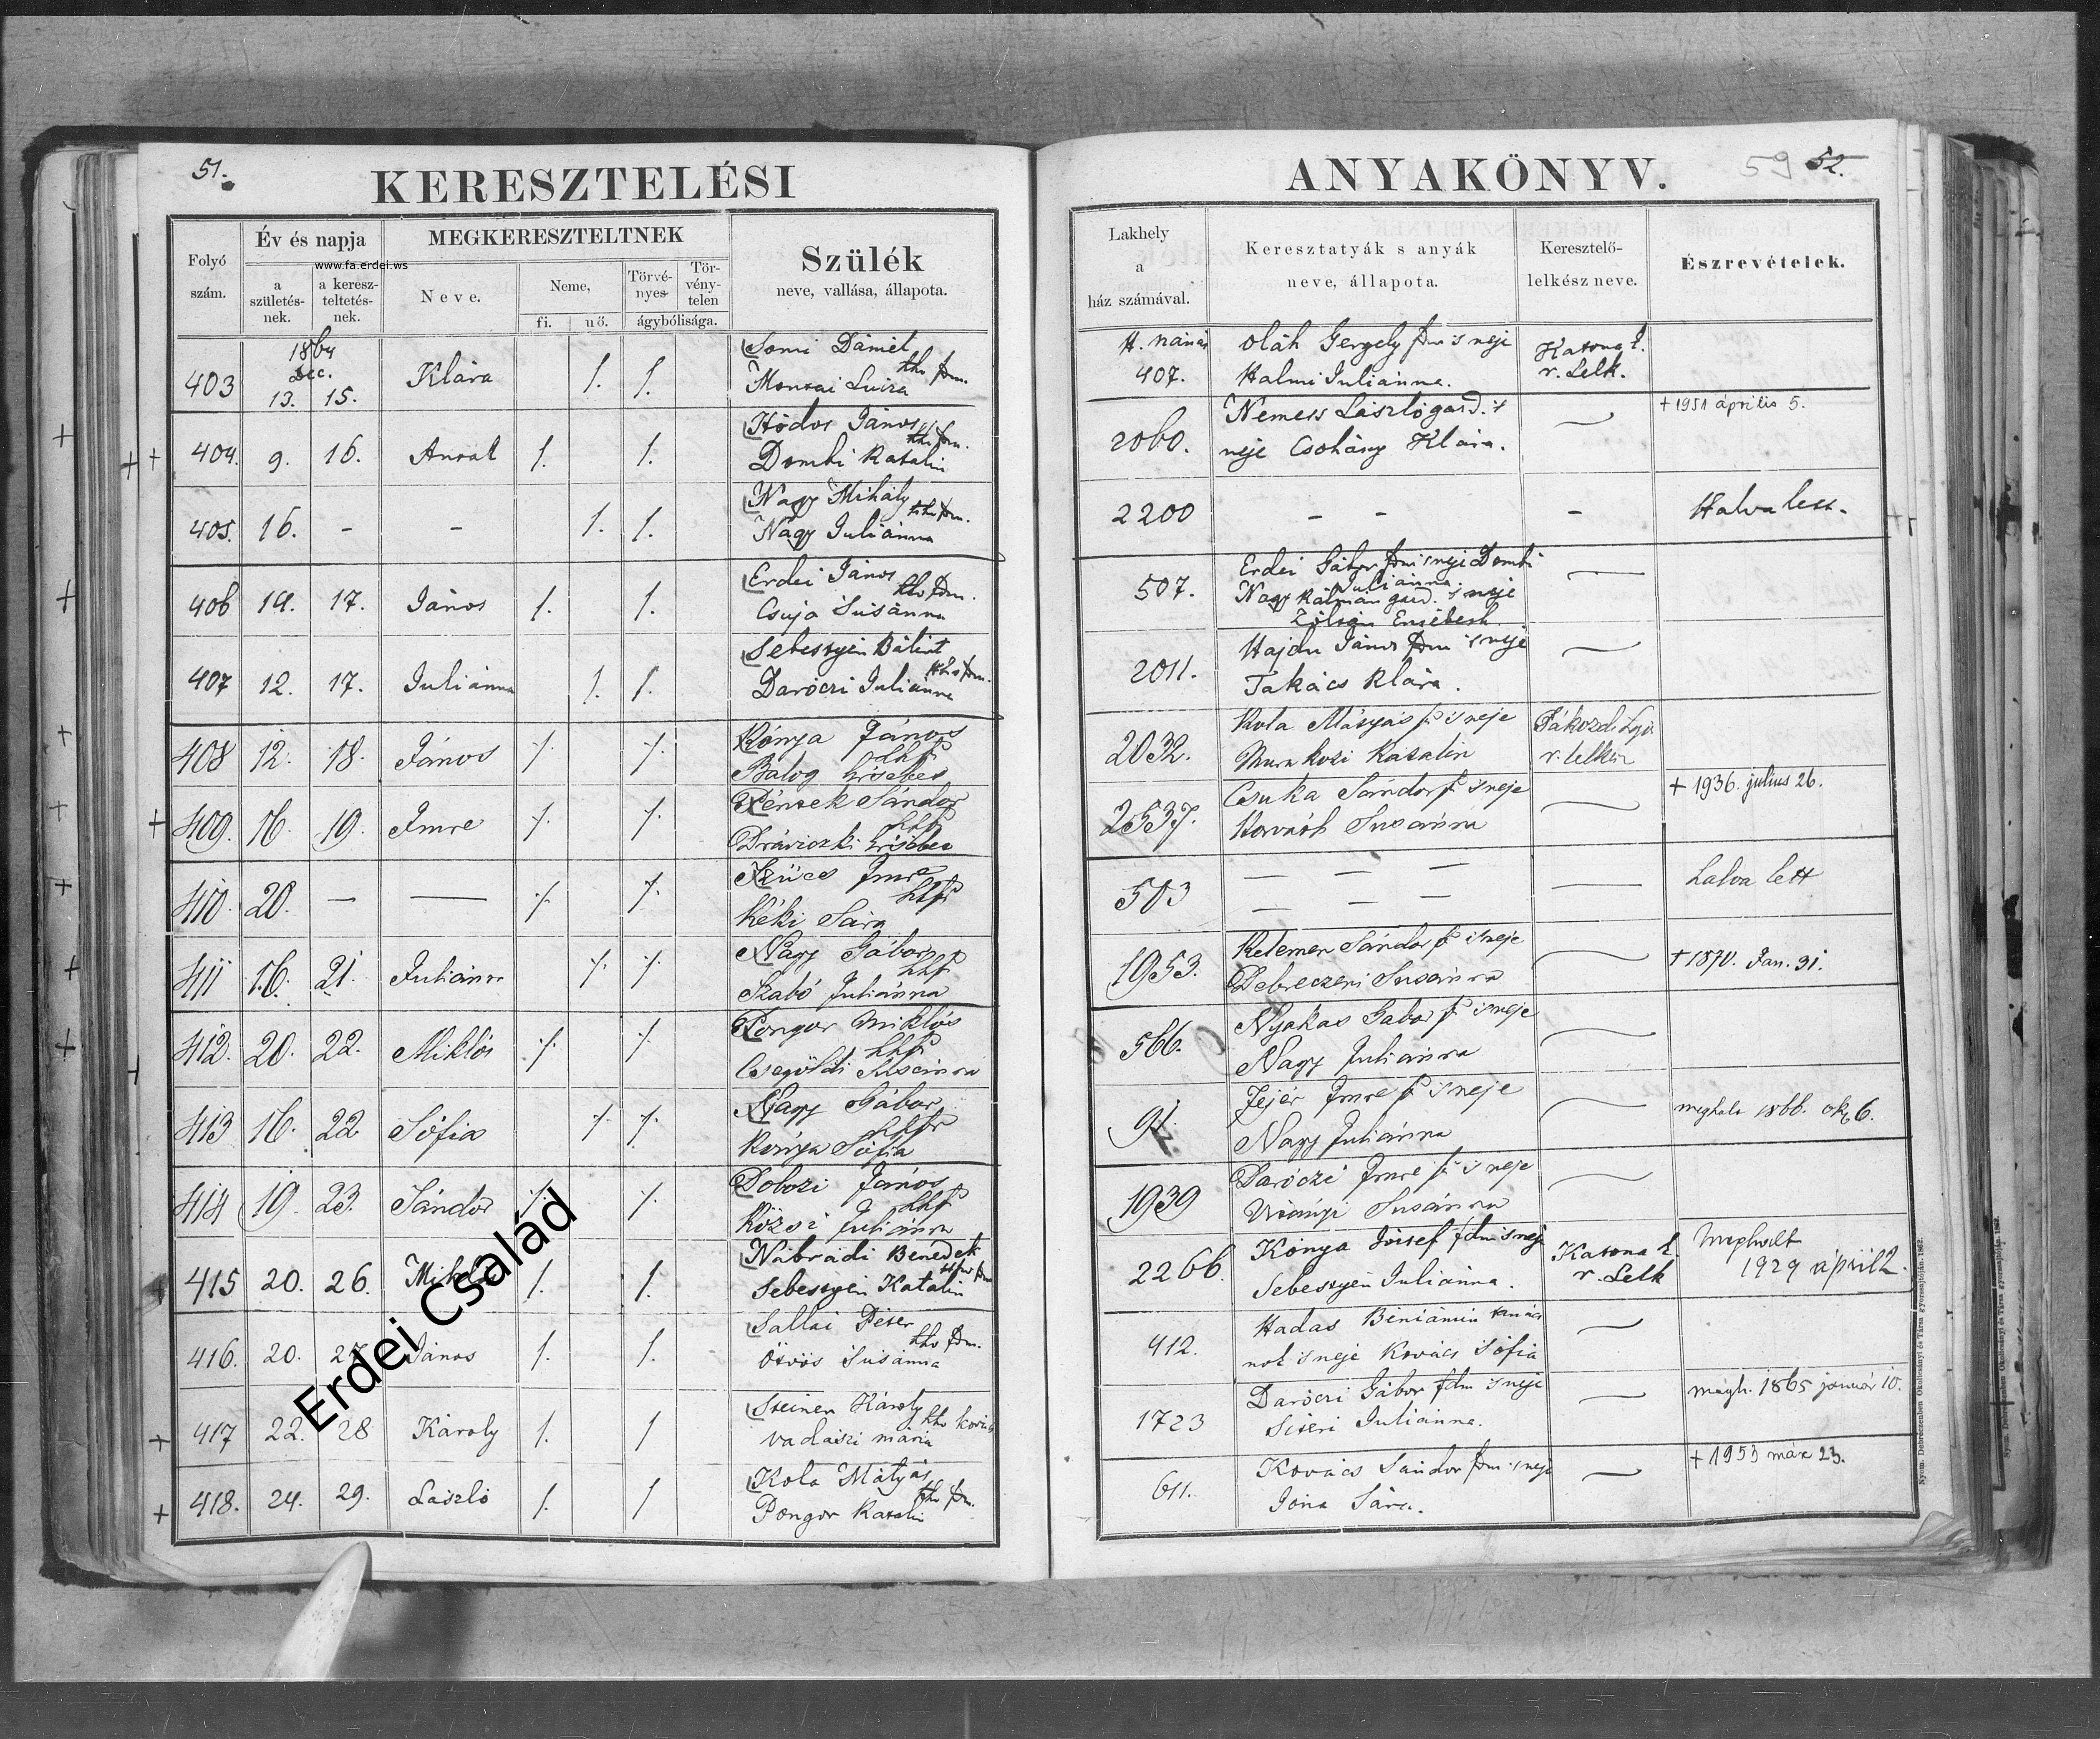 51.
KERESZTELÉSI
Folyó szám.
Év és napja
www.fa.erdei.ws
a születés-nek.
a keresz-teltetés-nek.
MEGKERESZTELTNEK
Neve.
Neme,
fi.
nő.
Törvé-nyes-
Tör-vény-telen
ágybólisága.
Szülék
neve, vallása, állapota.
1864
Dec.
403 13. 15. Klára 1. 1. Somi Dániel
hh fm.
Luiza
404. 9. 16. Antal 1. 1. Hódos János
hh fm.
Dombi Katalin
405. 16. - - 1. 1. Nagy Mihály
hh fm.
Nagy Juliánna
406 14. 17. János 1. 1. Erdei János
hh fm.
Csuja Susánna
407 12. 17. Juliánna 1. 1. Sebestyén Bálint
hh fm.
Daróczi Juliánna
408 12. 18. János 1. 1. Kónya János
hhf
Balog Ersébet
409. 16. 19. Imre 1. 1. Péntek Sándor
hhf
Ersébet
410. 20. — — 1. 1. Szücs Imre
hhf
Kéki Sára
411 16. 21. Juliánna 1. 1. Nagy Gábor
hhf
Szabó Juliánna
412. 20. 22. Miklós 1. 1. Pongor Miklós
hhf
Csegöldi Susánna
413 16. 22 Sófia 1. 1. Nagy Gábor
hhf
Kónya Sófia
414 19. 23. Sándor 1. 1. Dobozi János
hhf
Juliánna
415 20. 26. 1. 1. Nábrádi Benedek
Sebestyén Katalin
416. 20. 27 János 1. 1. Sallai Péter
hh fm.
Ötvös Susánna
417 22. 28 Károly 1. 1 Steiner Károly
hh
Vadászi Mária
418. 24. 29. László 1. 1 Kola Mátyás
hh fm.
Pongor Katalin
Erdei Család
ANYAKÖNYV.
59 52.
Lakhely
a
ház számával.
Keresztatyák s anyák
neve, állapota.
Keresztelő-
lelkész neve.
Észrevételek.
H. nánás
407. Oláh Gergely fm s neje
Halmi Juliánna.
Katona
r. Lelk.
2060. Nemess László gazd. s
neje Csohány Klára.
+ 1951 április 5.
2200 - - - Halva lett.
507. Erdei Gábor fm s neje Dombi
Juliánna.
Nagy Kálmán gazd. s neje
Ersébeth
2011. Hajdu János fm s neje
Takács Klára.
2032. Kola Mátyás f s neje
Katalin
r. lelkész
2537. Csuka Sándor f s neje
Horváth Susánna
+ 1936. július 26.
503 — — —
— — —
halva lett
1953. Kelemen Sándor f s neje
Debreczeni Susánna
+ 1870. Jan. 31.
566. Nyakas Gabor f s neje
Nagy Juliánna
91. Fejér Imre f s neje
Nagy Juliánna
meghalt 1866. okt 6.
1939 Daróczi Imre f s neje
Susánna
2266 Kónya József fdm s neje
Sebestyén Juliánna.
Katona
r. Lelk
Meghalt
1929 april 2.
412. Hadas Beniámin
s neje Kovács Sófia
1723 Daróczi Gábor fdm s neje
Siteri Juliánna.
megh. 1865 január 10.
611. Kovács Sándor fm s neje
Jóna Sára.
+ 1953 már 23.
Nyom. Debreczenben Okolicsányi és Társa gyorssajtóján. 1862.